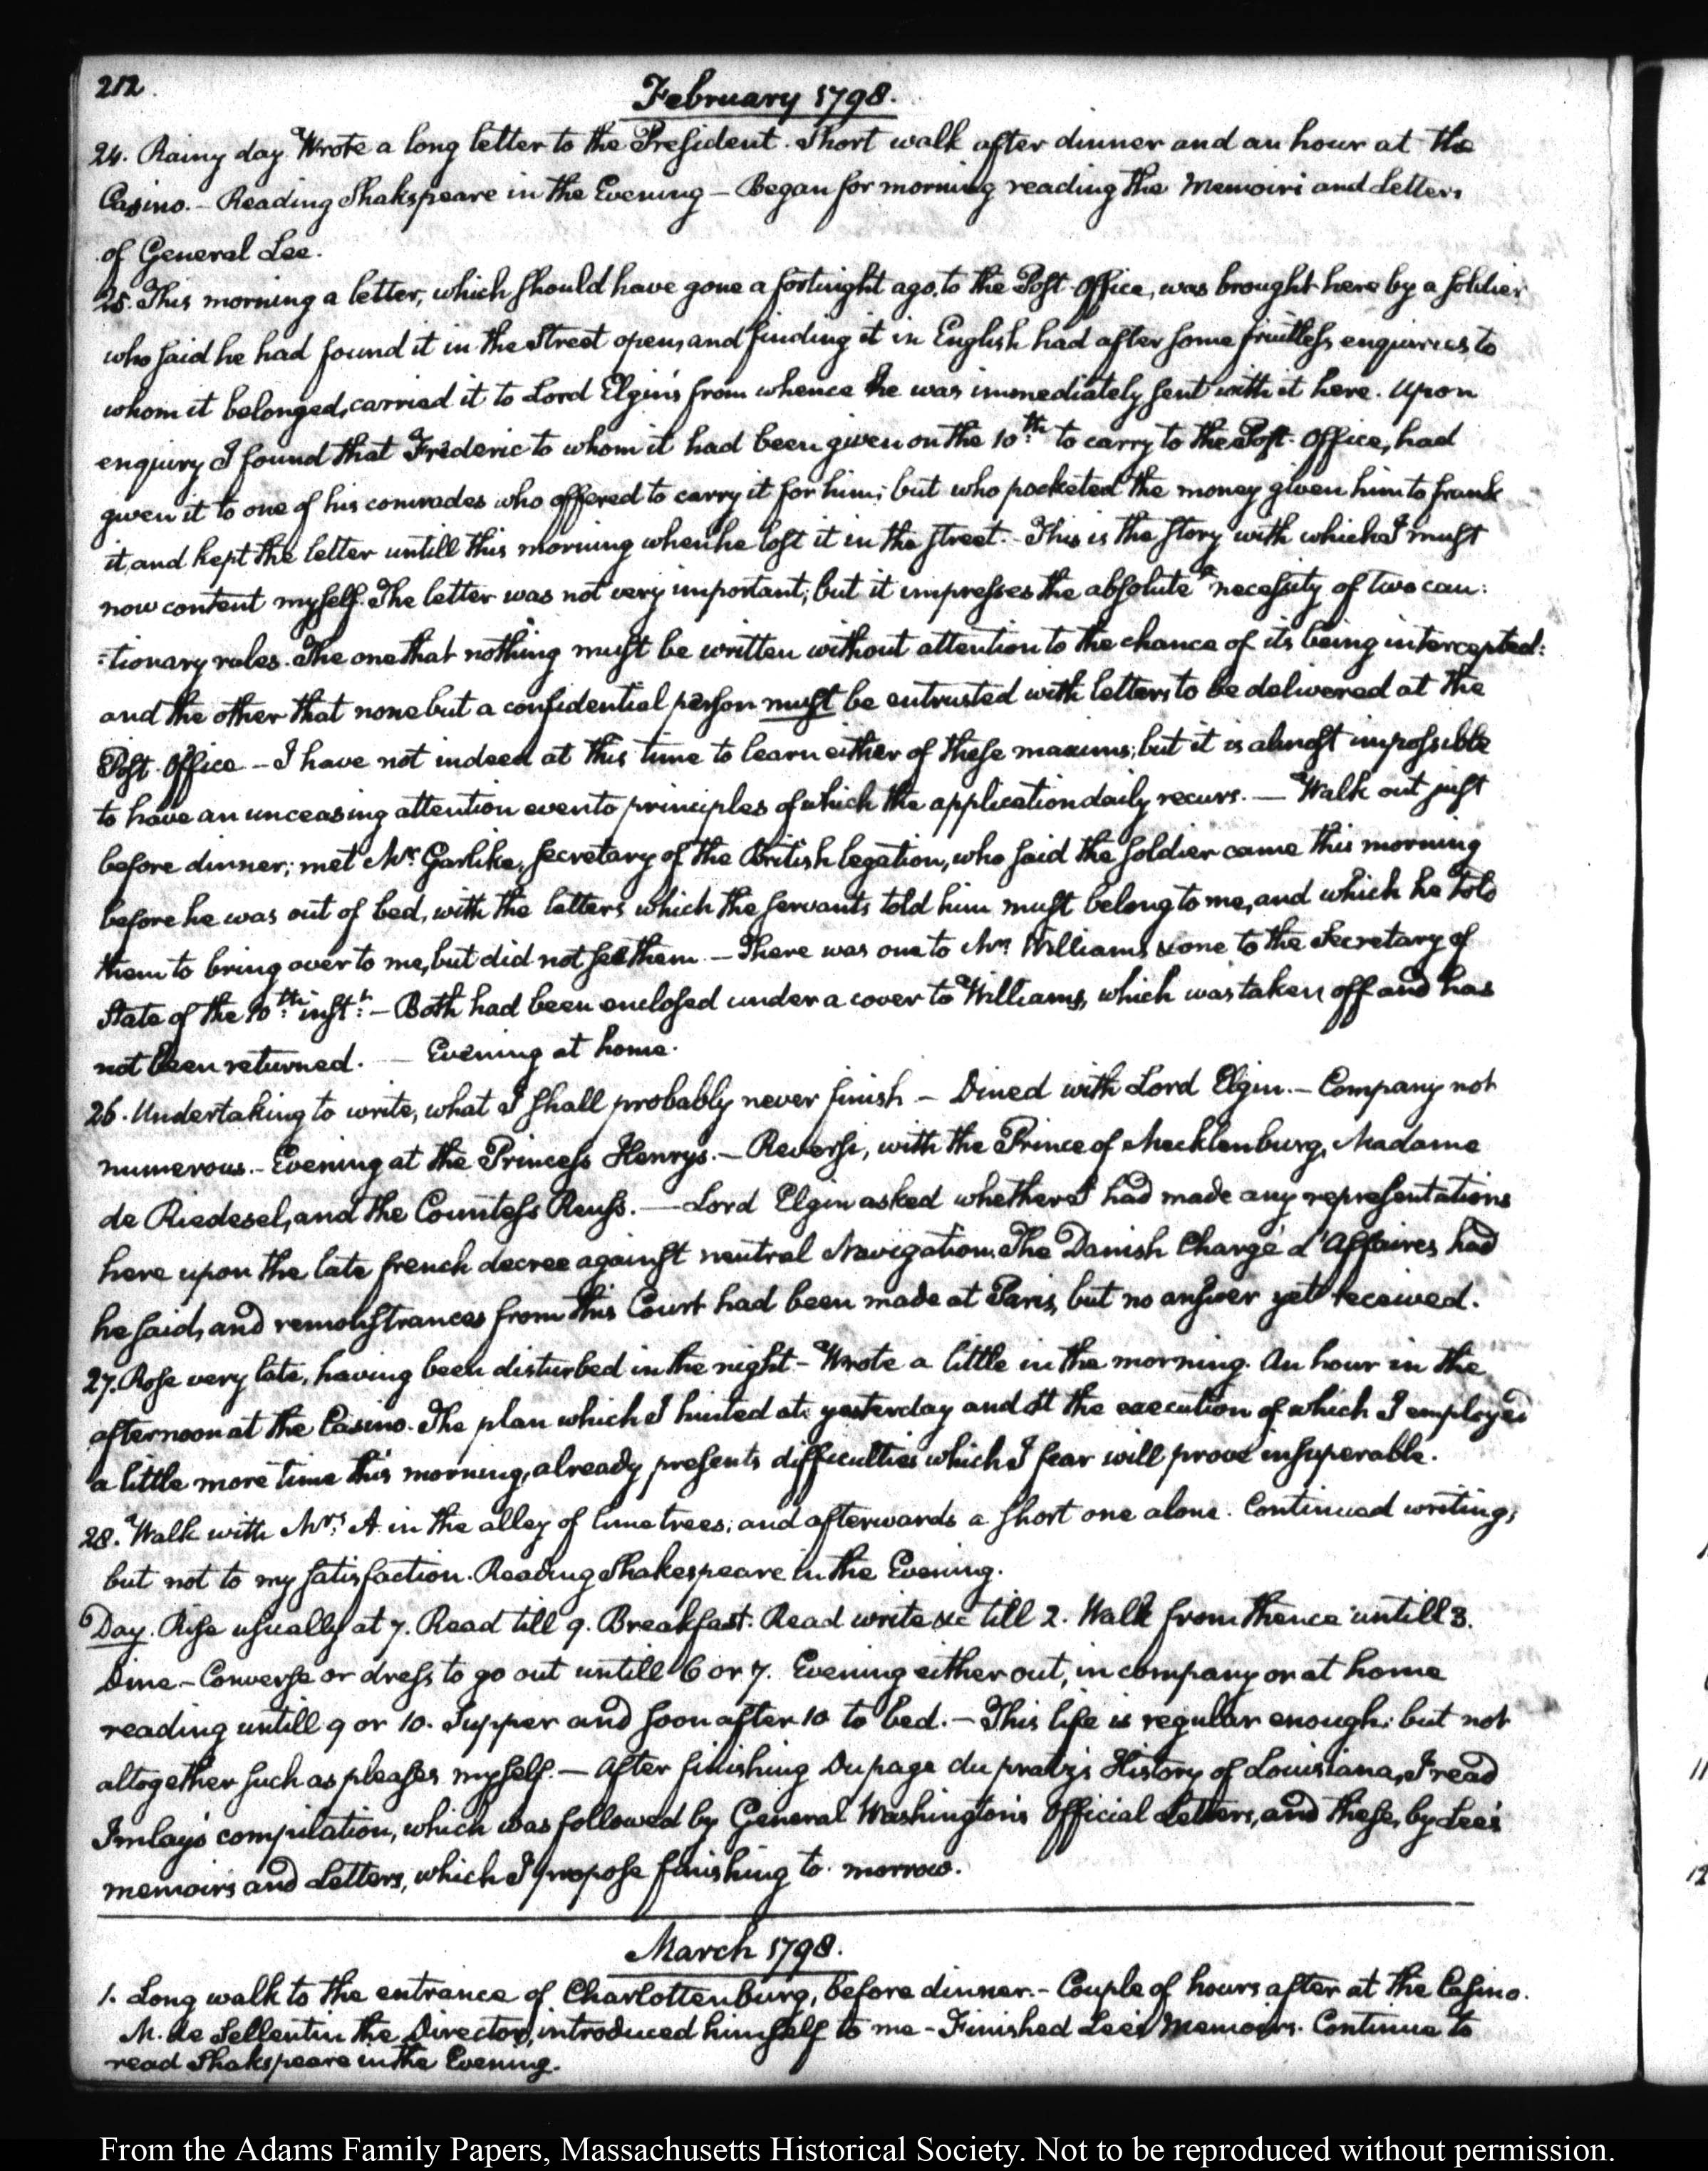 212.
February 1798.
24. Rainy day. Wrote a long letter to the President. Short walk after dinner and an hour at the
Casino. – Reading Shakspeare in the Evening – Began for morning reading the Memoirs and Letters
of General Lee.
25. This morning a letter, which should have gone a fortnight ago, to the Post-Office, was brought here by a soldier
who said he had found it in the Street open, and finding it in English had after some fruitless enquiries, to
whom it belonged, carried it to Lord Elgin's from whence he was immediately sent with it here. Upon
enquiry I found that Frederic to whom it had been given on the 10th. to carry to the Post-Office, had
given it to one of his comrades who offered to carry it for him; but who pocketed the money given him to frank
it, and kept the letter untill this morning when he lost it in the street. – This is the story with which I must
now content myself. The letter was not very important; but it impresses the absolute necessity of two cau:
:tionary rules. The one that nothing must be written without attention to the chance of its being intercepted:
and the other that none but a confidential person must be entrusted with letters to be delivered at the
Post-Office – I have not indeed at this time to learn either of these maxims; but it is almost impossible
to have an unceasing attention even to principles of which the application daily recurs. — Walk out just
before dinner; met Mr. Garlike, secretary of the British legation, who said the soldier came this morning
before he was out of bed, with the letters which the servants told him must belong to me, and which he told
them to bring over to me, but did not see them. – There was one to Mr. Williams & one to the Secretary of
State of the 10th. inst. – Both had been enclosed under a cover to Williams, which was taken off and has
not been returned. — Evening at home.
26. Undertaking to write, what I shall probably never finish – Dined with Lord Elgin. – Company not
numerous. – Evening at the Princess Henry's. – Reversi, with the Prince of Mecklenburg, Madame
de Riedesel, and the Countess Reuss. — Lord Elgin asked whether I had made any representations
here upon the late french decree against neutral Navigation. The Danish Chargé d'Affaires had
he said, and remonstrances from this Court had been made at Paris, but no answer yet received.
27. Rose very late, having been disturbed in the night – Wrote a little in the morning. An hour in the
afternoon at the Casino. The plan which I hinted at yesterday and at the execution of which I employed
a little more time this morning, already presents difficulties which I fear will prove insuperable.
28. Walk with Mrs. A in the alley of lime trees; and afterwards a short one alone. Continued writing;
but not to my satisfaction. Reading Shakespeare in the Evening.
Day. Rise usually at 7. Read till 9. Breakfast. Read write &c till 2. Walk from thence untill 3.
Dine – Converse or dress to go out untill 6 or 7. Evening either out, in company or at home
reading untill 9 or 10. Supper and soon after 10 to bed. – This life is regular enough; but not
altogether such as pleases myself. — After finishing Dupage du pratz's History of Louisiana, I read
Imlay's compilation, which was followed by General Washington's Official Letters, and these, by Lee's
memoirs and Letters, which I propose finishing to-morrow.
March 1798.
1. Long walk to the entrance of Charlottenburg, before dinner. – Couple of hours after at the Casino.
M. de Sellentin the Director, introduced himself to me – Finished Lee's Memoirs. Continue to
read Shakspeare in the Evening.
11
12
From the Adams Family Papers, Massachusetts Historical Society. Not to be reproduced without permission.